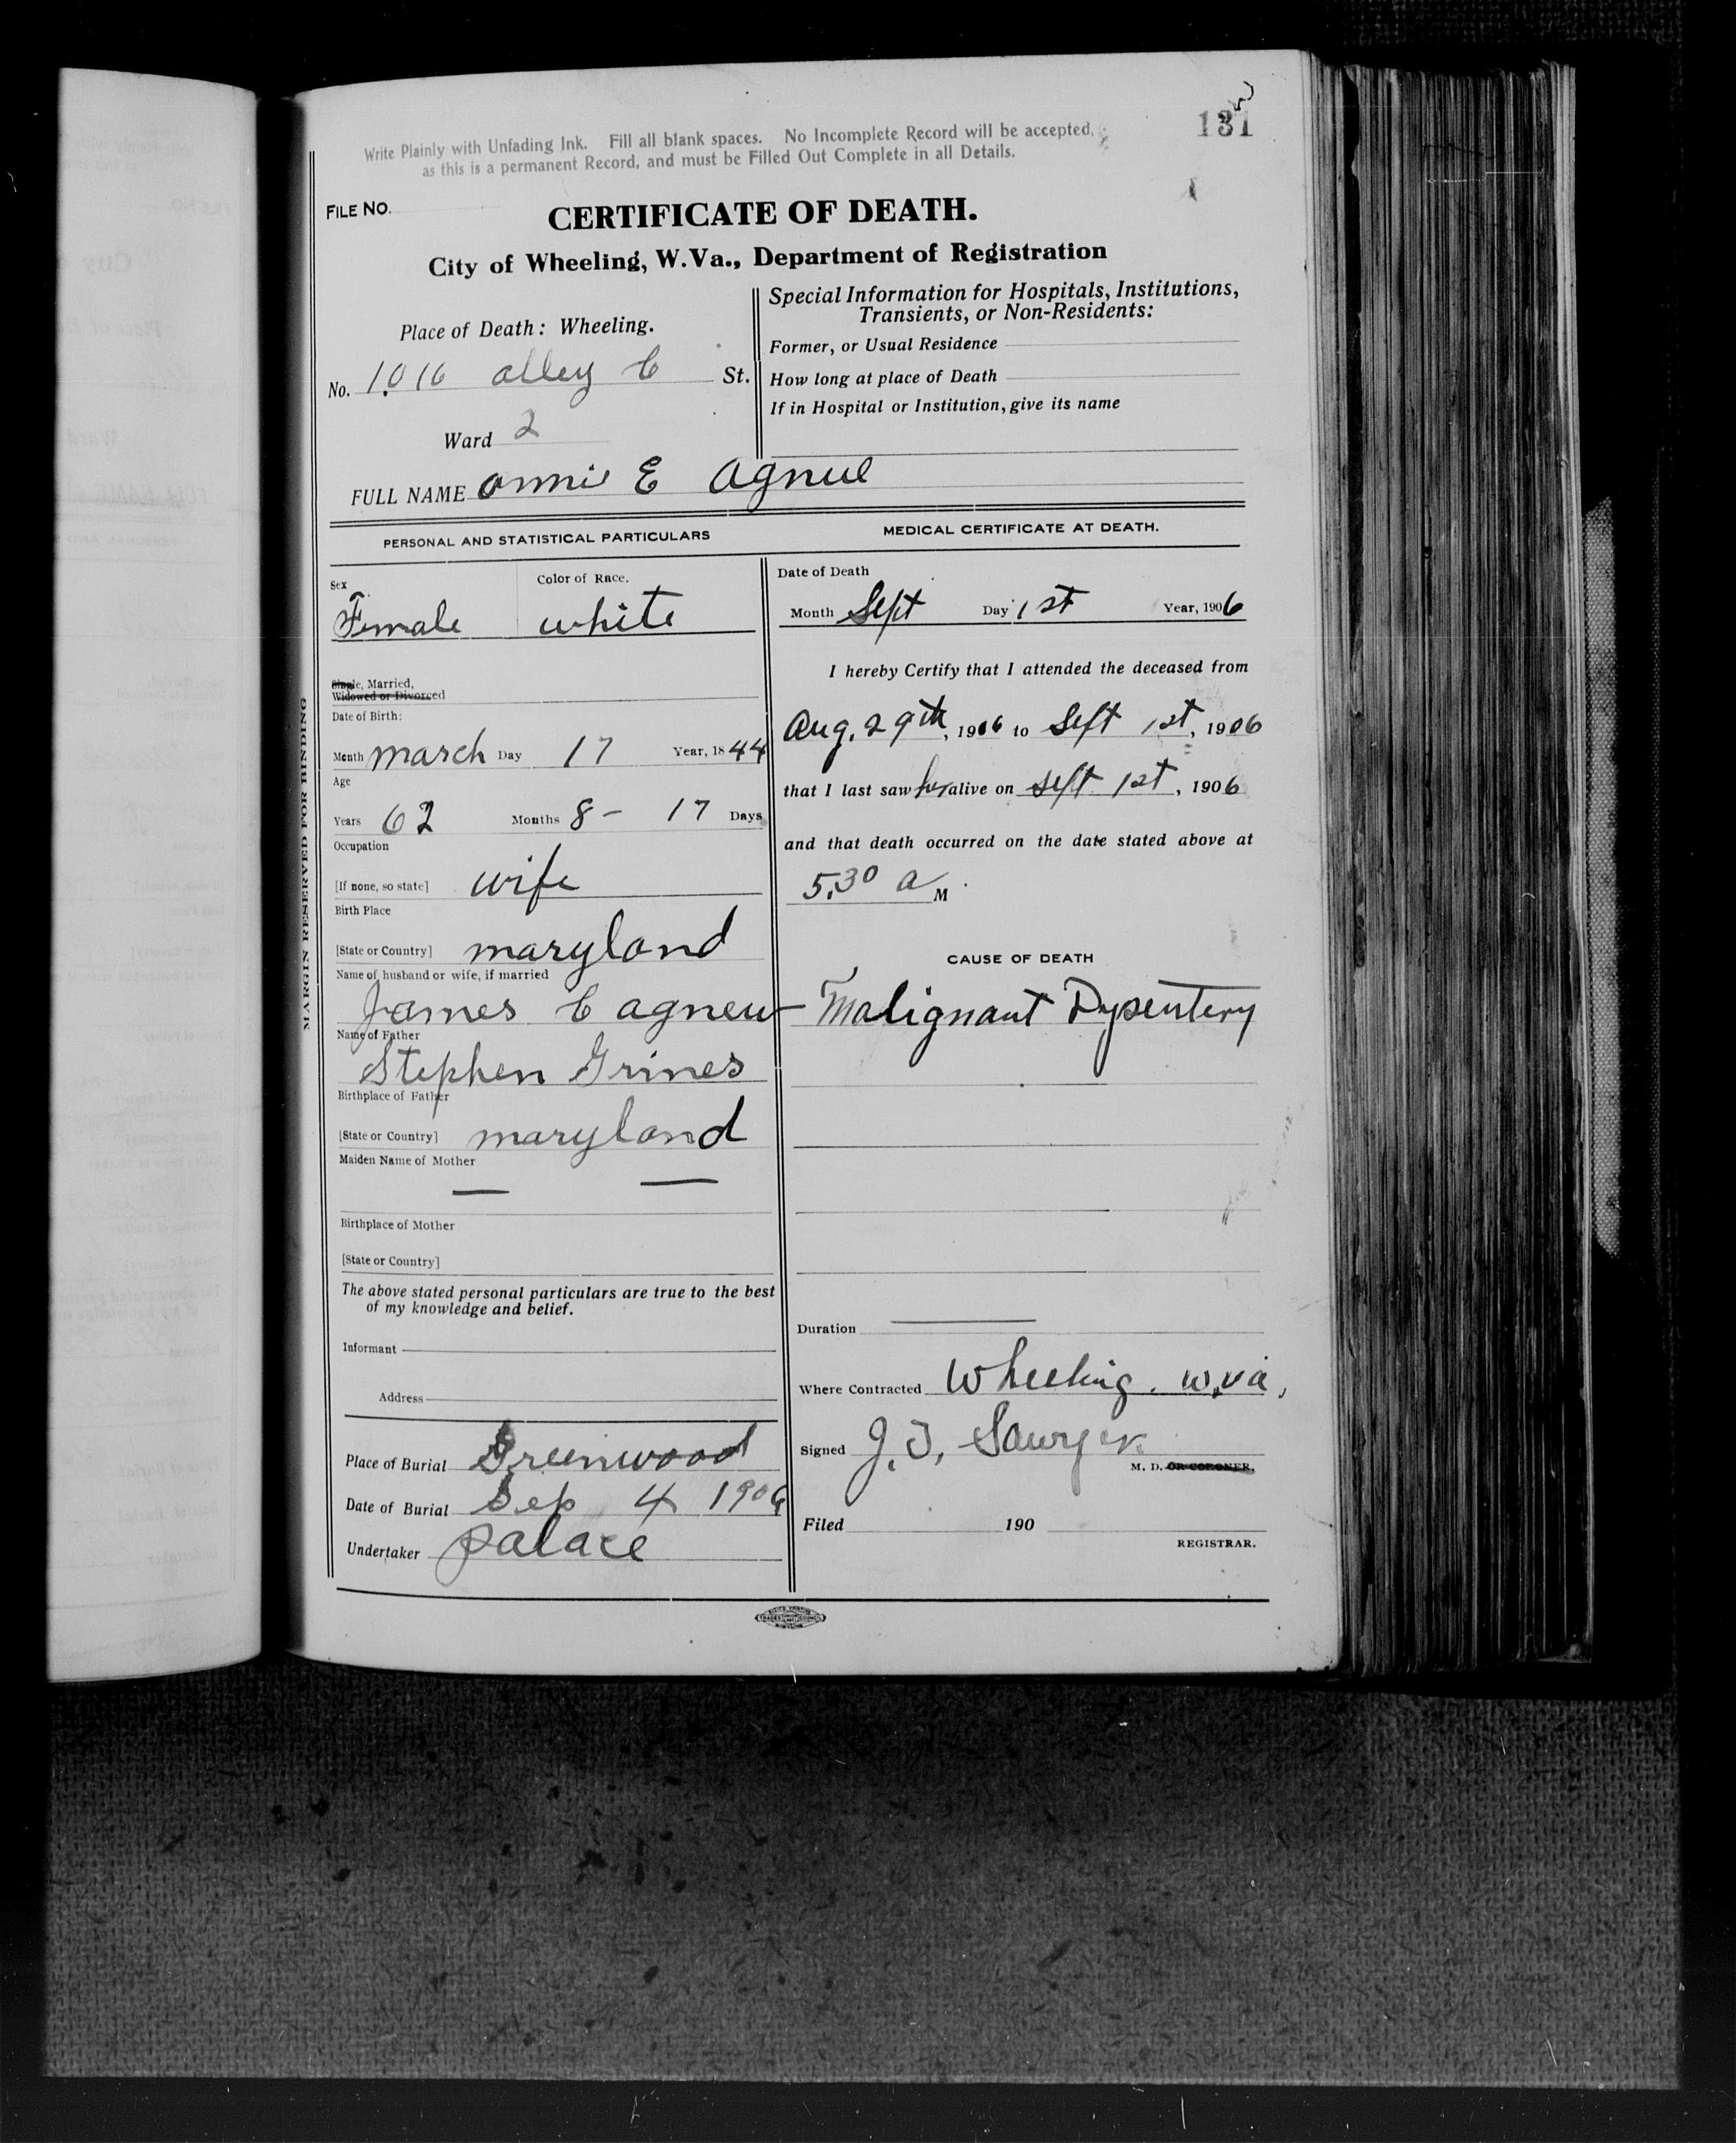 131
Write Plainly with Unfading Ink. Fill all blank spaces. No Incomplete Record will be accepted,
as this is a permanent Record, and must be Filled Out Complete in all Details.
FILE NO.
CERTIFICATE OF DEATH.
City of Wheeling, W.Va., Department of Registration
Place of Death: Wheeling.
No. 1016 alley C St.
Ward 2
Special Information for Hospitals, Institutions,
Transients, or Non-Residents:
Former, or Usual Residence
How long at place of Death
If in Hospital or Institution, give its name
FULL NAME Annie E Agnew
PERSONAL AND STATISTICAL PARTICULARS
MARGIN RESERVED FOR BINDING
Sex Color of Race.
Female white
Single, Married,
Widowed or Divorced
Date of Birth:
Month march Day 17 Year, 1844
Age
Years 62 Months 8 - 17 Days
Occupation
[If none, so state] wife
Birth Place
[State or Country] maryland
Name of husband or wife, if married
James C agnew
Name of Father
Stephen Grimes
Birthplace of Father
[State or Country] maryland
Maiden Name of Mother
— —
Birthplace of Mother
[State or Country]
The above stated personal particulars are true to the best
of my knowledge and belief.
Informant
Address
Place of Burial Greenwood
Date of Burial Sep 4 1906
Undertaker palace
MEDICAL CERTIFICATE AT DEATH.
Date of Death
Month Sept Day 1st Year, 1906
I hereby Certify that I attended the deceased from
Aug. 29th, 1906 to Sept 1st, 1906
that I last saw her alive on Sept 1st, 1906
and that death occurred on the date stated above at
5.30 a M
CAUSE OF DEATH
Malignant Dysentery
Duration
Where Contracted Wheeling. W.Va,
Signed J. T. Sawyer
M. D. OR CORONER.
Filed 190
REGISTRAR.